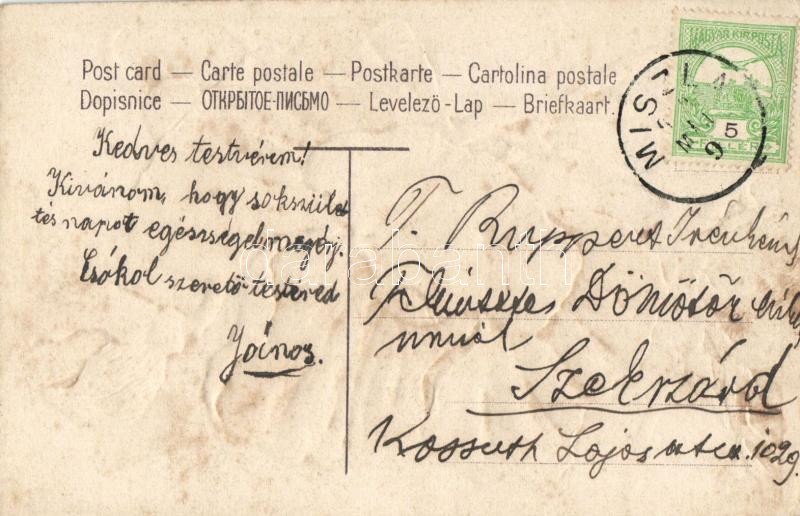 Post card — Carte postale — Postkarte — Cartolina postale
Dopisnice — ОТКРЫТОЕ-ПИСЬМО — Levelező-Lap — Briefkaart.
MAGYAR KIR. POSTA
5
FILLÉR
Kedves testvérem!
Kivánom, hogy sokszület
tés napot egészségel megérj.
Csókol szerető testvéred
János.
T. Ruppert Irén
Dömötör
Szekszárd
Kossuth Lajos utca 1029.
darabanth